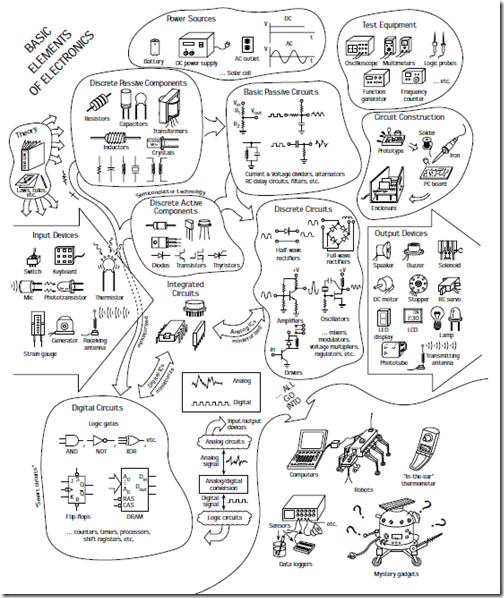 BASIC
ELEMENTS
OF ELECTRONICS
Power Sources
Battery
DC power supply
AC outlet
... Solar cell
DC
V
t
AC
V
t
Test Equipment
Oscilloscope
Multimeters
Logic probes
Function
generator
Frequency
counter
... etc.
Discrete Passive Components
Resistors
Capacitors
Transformers
Inductors
Crystals
Basic Passive Circuits
Vin
R1
R2
Vout
Current & Voltage dividers, alternators
RC delay circuits, filters, etc.
Circuit Construction
Prototype
Solder
Iron
PC board
Enclosure
Theory
Laws, rules,
etc.
Semiconductor technology
Discrete Active
Components
Diodes
Transistors
Thyristors
Discrete Circuits
Half-wave
rectifiers
Full-wave
rectifiers
+V
+V
Amplifiers
Oscillators
In
Drivers
... mixers,
modulators,
voltage multipliers,
regulators, etc.
Input Devices
Switch
Keyboard
Mic
Phototransistor
Thermistor
Strain gauge
Generator
Receiving
antenna
Integrated
Circuits
Analog ICs
miniaturized
Digital ICs
miniaturized
Output Devices
Speaker
Buzzer
Solenoid
DC motor
Stepper
RC servo
LED
display
LCD
Lamp
Phototube
Transmitting
antenna
Analog
Digital
... ALL
GO
INTO
Digital Circuits
Logic gates
AND
NOT
XOR
etc.
J
K
Q
Q
RAS
CAS
Din
Dout
Flip-flops
DRAM
... counters, timers, processors,
shift registers, etc.
"Smart circuits"
Input/output
devices
Analog circuits
Analog
signal
Analog/digital
conversion
Digital
signal
Logic circuits
Computers
Robots
"In-the-ear"
thermometer
Sensors
etc.
Data loggers
? ? ? ?
Mystery gadgets